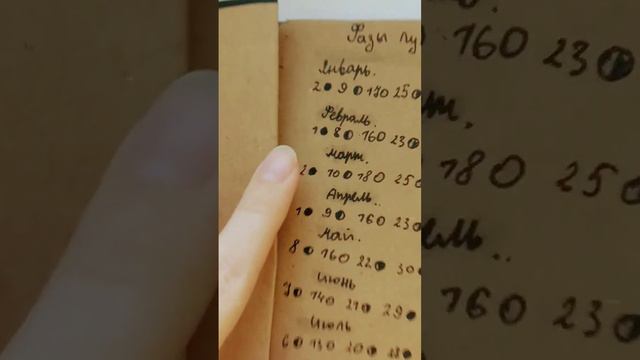 Фазы лу
Январь.
2 9 17 25
Февраль.
1 8 16 23
март.
2 10 18 25
Апрель..
1 9 16 23
Май.
8 16 22 30
июнь
7 14 21 29
Июль
6 13 20 28